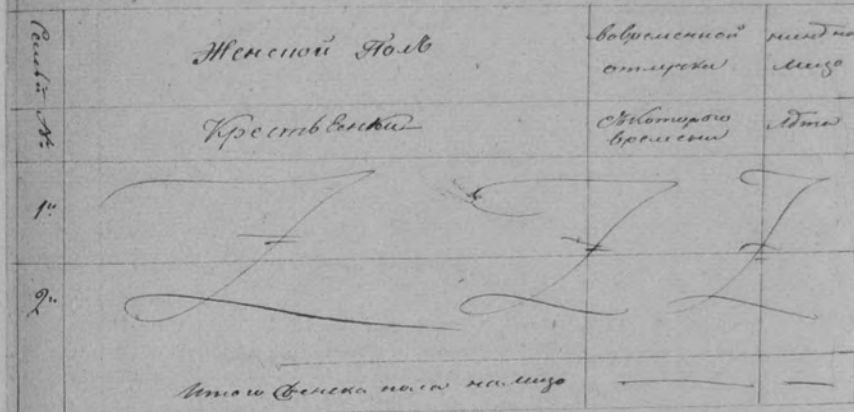 Семьи №
Женской Полъ
Вовременной
отлучки
ныне на
лицо
Крестьенки
Съ котораго
времени
Лѣта
1й
2й
Итого женска пола на лицо